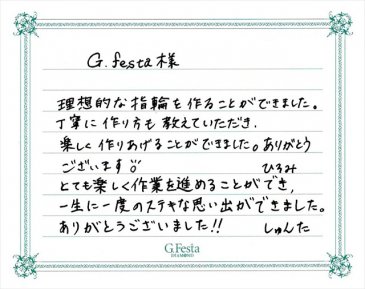 G.festa様
理想的な指輪を作ることができました。
丁寧に作り方も教えていただき、
楽しく作りあげることができました。ありがとう
ございます
ひろみ
とても楽しく作業を進めることができ、
一生に一度のステキな思い出ができました。
ありがとうございました!!
しゅんた
G.Festa
DIAMOND